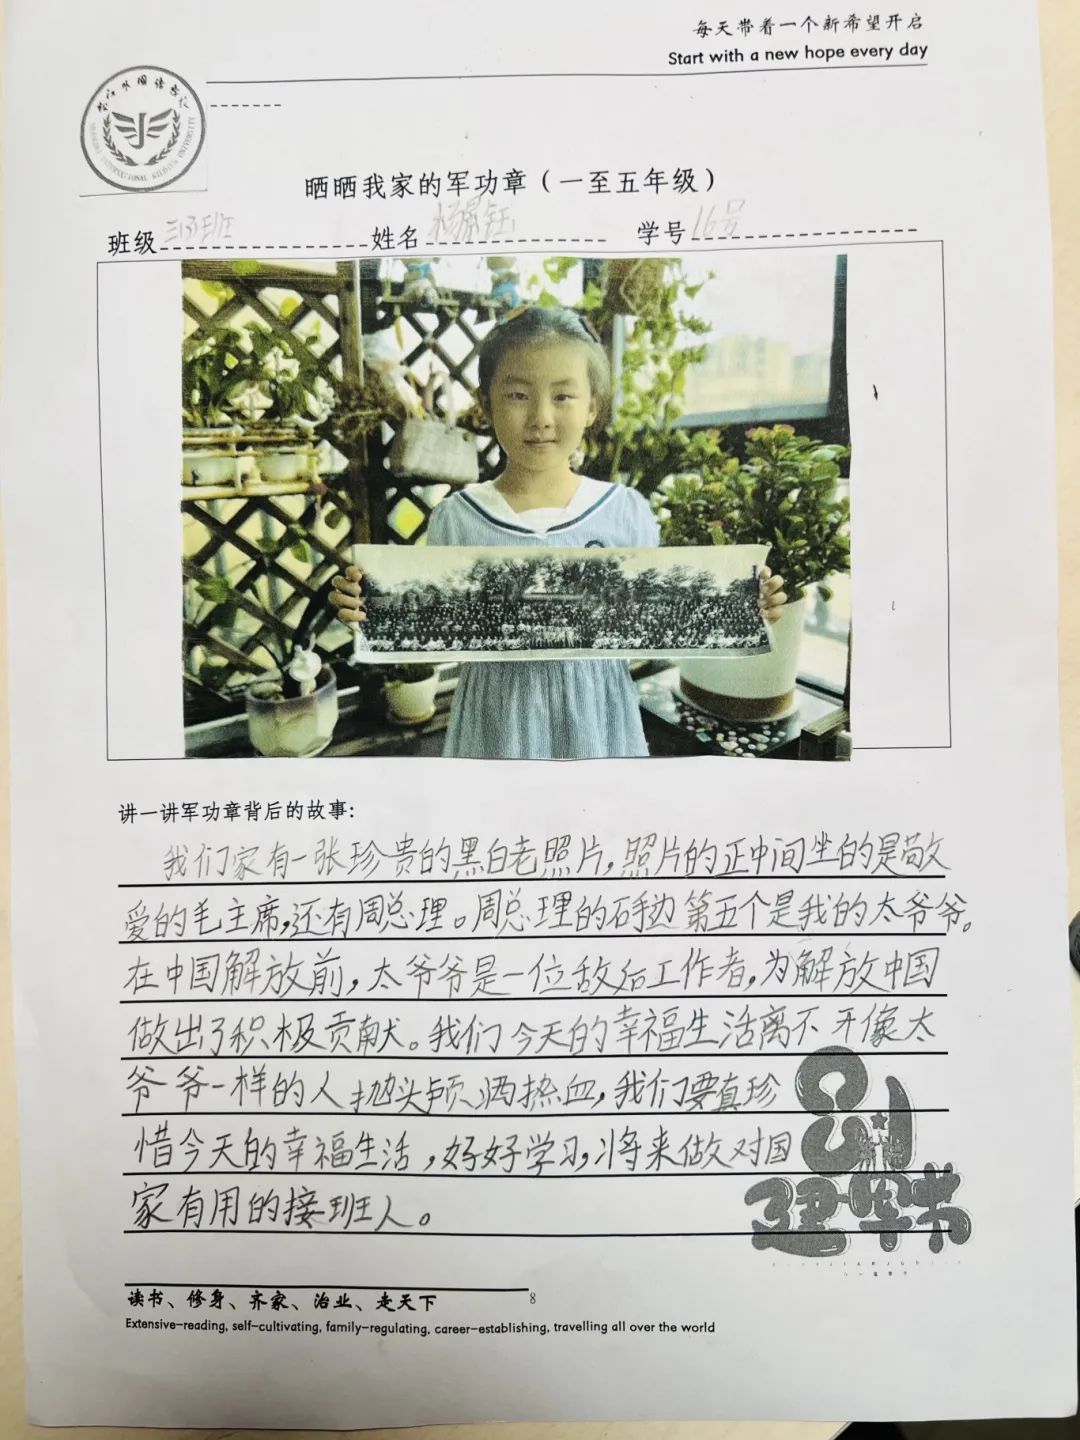 每天带着一个新希望开启
Start with a new hope every day
晒晒我家的军功章（一至五年级）
班级 姓名 学号 16号
讲一讲军功章背后的故事：
我们家有一张珍贵的黑白老照片，照片的正中间坐的是敬
爱的毛主席，还有周总理。周总理的右手边第五个是我的太爷爷。
在中国解放前，太爷爷是一位敌后工作者，为解放中国
做出了积极贡献。我们今天的幸福生活离不开像太
爷爷一样的人抛头颅洒热血，我们要真珍
惜今天的幸福生活，好好学习，将来做对国
家有用的接班人。
八一
建军节
读书、修身、齐家、治业、走天下
8
Extensive-reading, self-cultivating, family-regulating, career-establishing, travelling all over the world